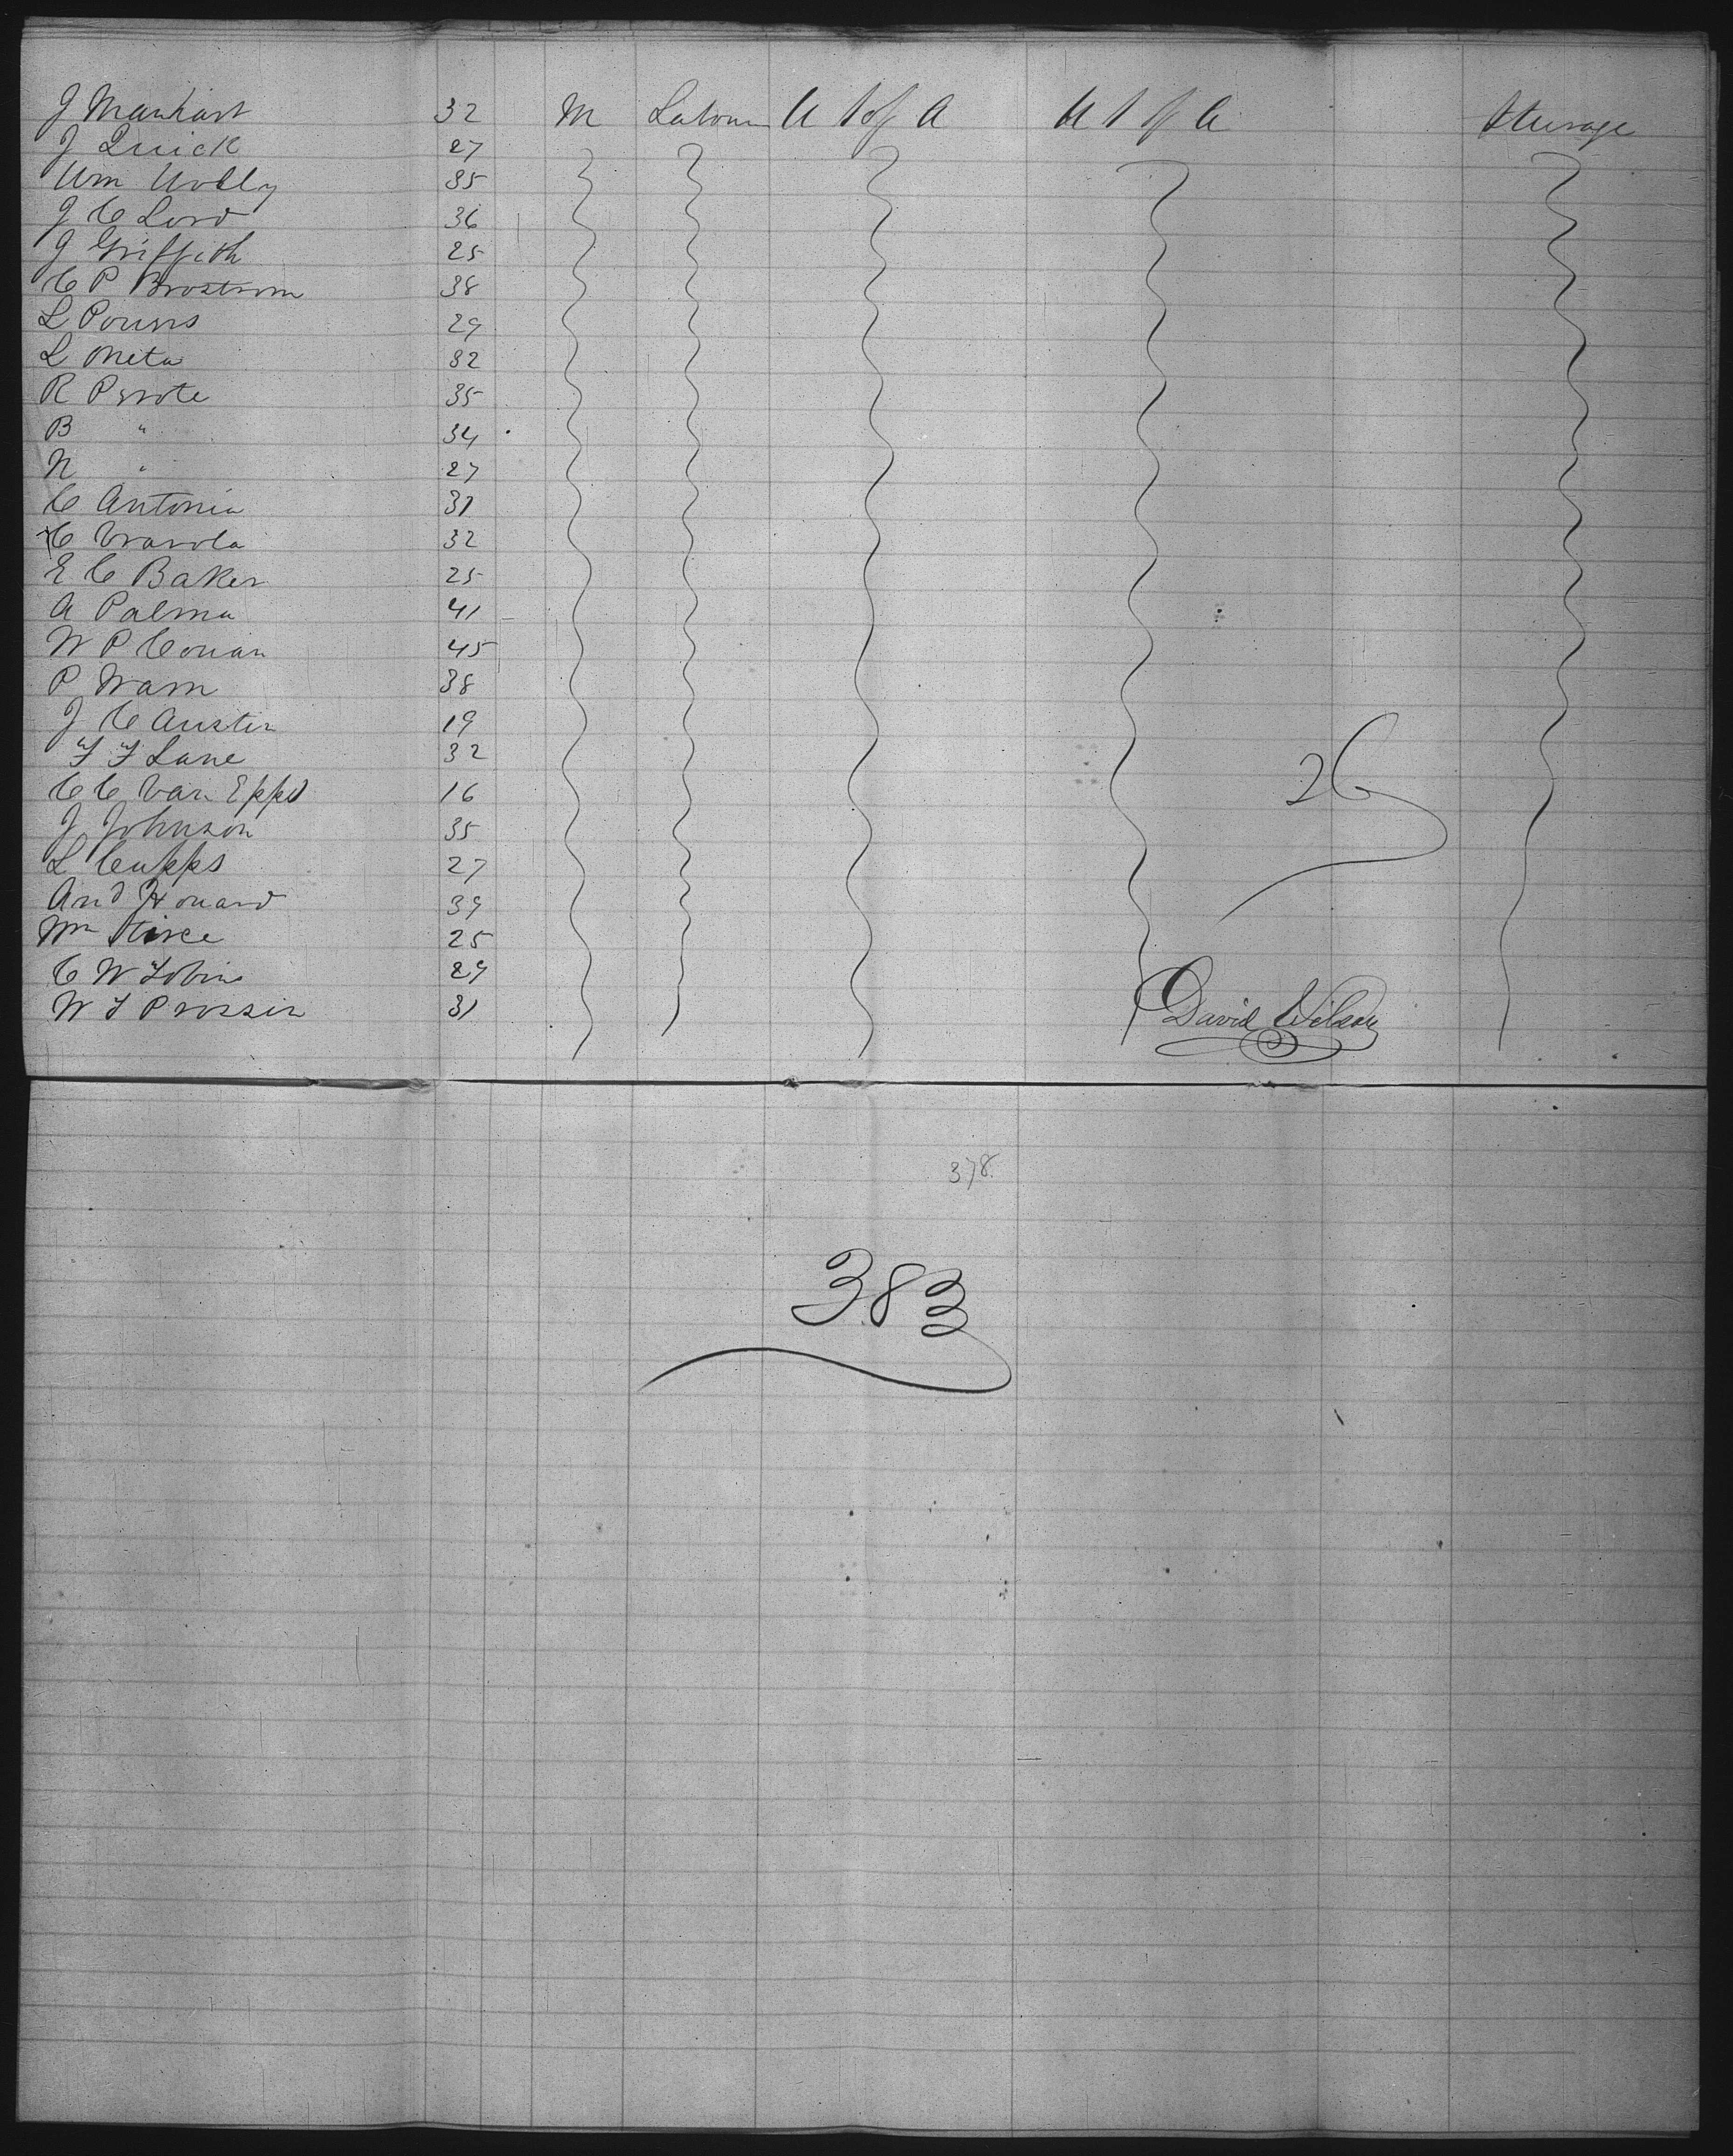 J Manhart 32 M Labour U S of A U S of A Steerage
J Quick 27
Wm Wolly 35
J C Lord 36
J Griffith 25
C P Brostrom 38
L Pouns 29
L Meta 32
R Perrote 35
B " 34
N " 27
C Antonia 31
C Vrarola 32
E C Baker 25
A Palma 41
W P Conan 45
P Wam 38
J C Austin 19
F F Lane 32
C C Van Epps 16
J Johnson 35
L Cupps 27
And Howard 39
Wm 25
C W Tobin 29
W F Prossin 31
26
David Wilson
378
383